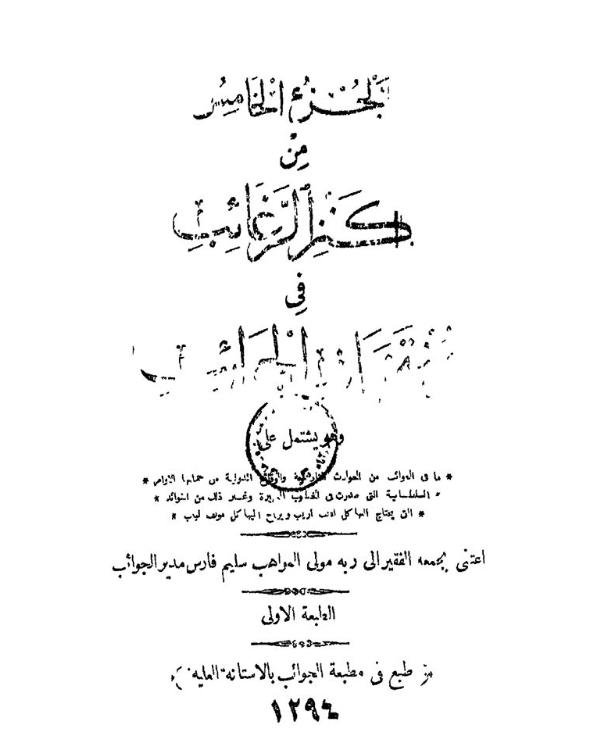 الجُزءُ الخَامِسُ
مِن
كَنزِ الرَّغَائِبِ
فِي
الجَوَائِب
وهو يشتمل على
* ما فى الجوائب من الحوادث والوقائع الدولية من جملتها الاوامر *
* السلطانية التى صدرت فى وغير ذلك من الفوائد *
* التى يحتاج اليها كل اديب ويرتاح اليها كل لبيب *
اعتنى بجمعه الفقير الى ربه مولى المواهب سليم فارس مدير الجوائب
الطبعة الاولى
طبع فى مطبعة الجوائب بالاستانة العلية
١٢٩٤